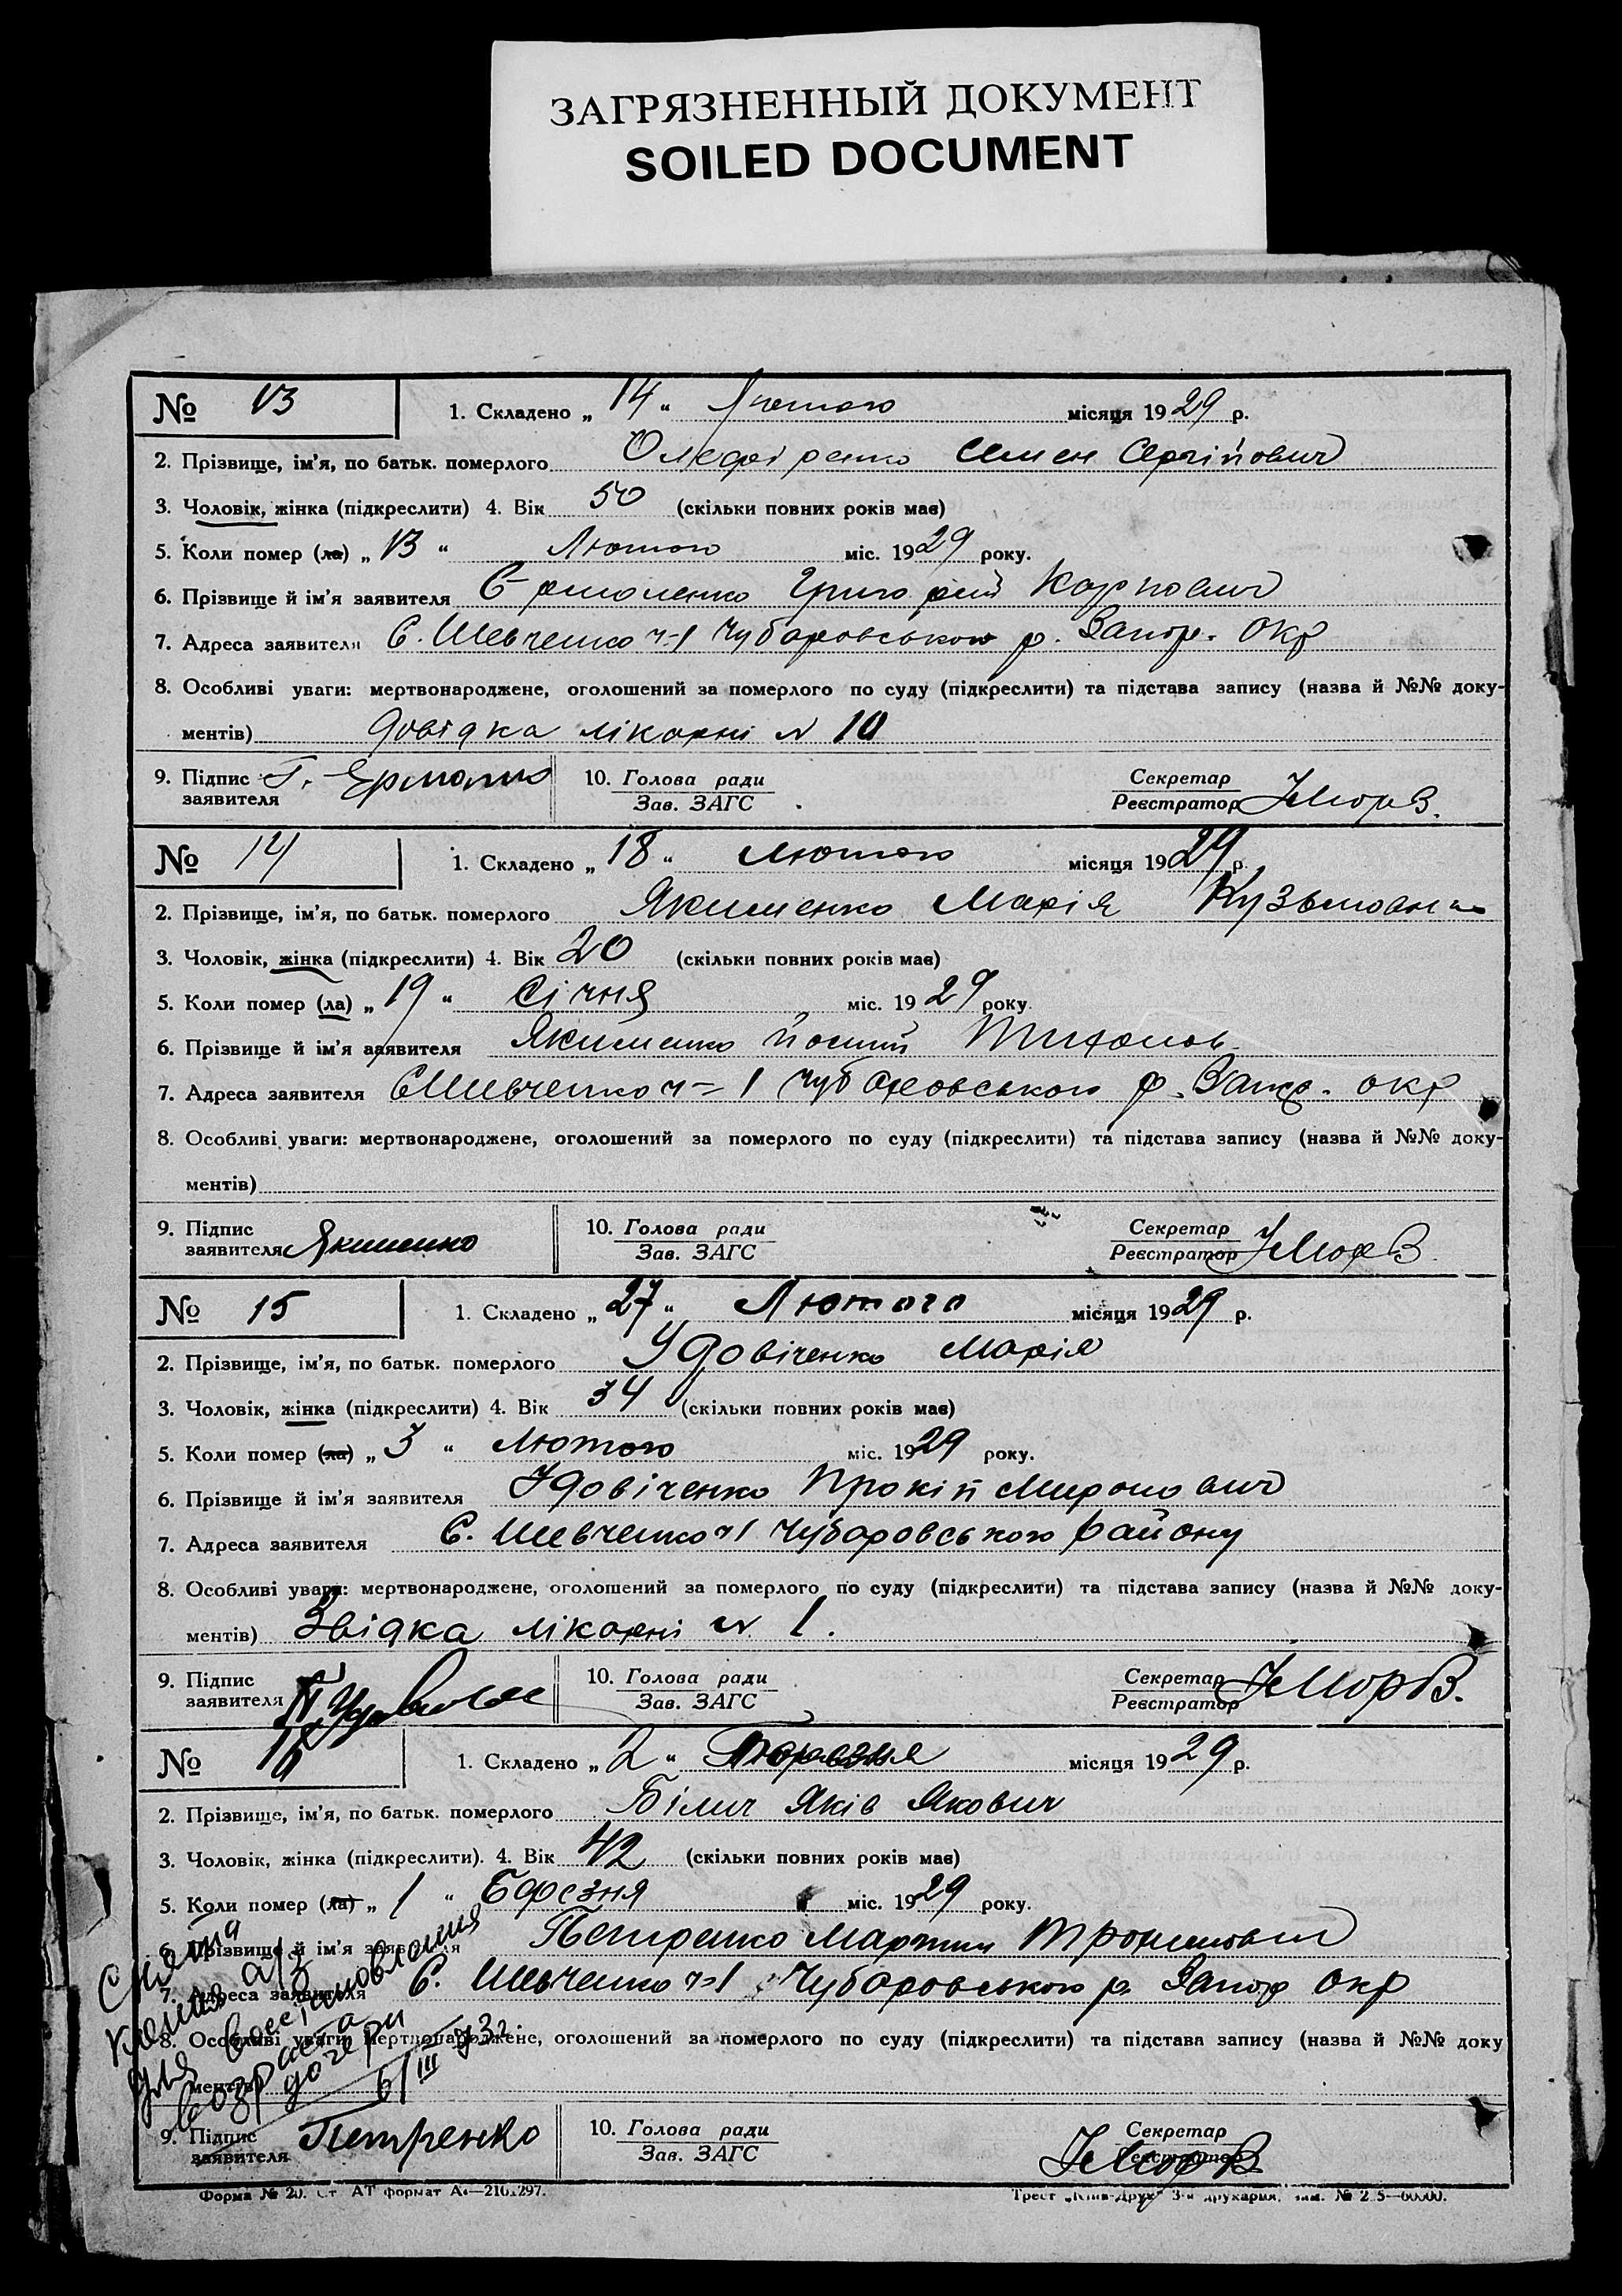 ЗАГРЯЗНЕННЫЙ ДОКУМЕНТ
SOILED DOCUMENT
№ 13 1. Складено „ 14 “ Лютого місяця 1929 р.
2. Прізвище, ім'я, по батьк. померлого Олефіренко Семен Сергійович
3. Чоловік, жінка (підкреслити) 4. Вік 50 (скільки повних років має)
5. Коли помер (ла) „ 13 “ Лютого міс. 1929 року.
6. Прізвище й ім'я заявителя Єрмоленко Григорій Карпович
7. Адреса заявителя С. Шевченко ч-1 Чубаровського р. Запор. Окр
8. Особливі уваги: мертвонароджене, оголошений за померлого по суду (підкреслити) та підстава запису (назва й №№ доку-
ментів) Довідка лікарні N 10
9. Підпис Г. 10. Голова ради Секретар
заявителя Зав. ЗАГС Реєстратор
№ 14 1. Складено „ 18 “ Лютого місяця 1929 р.
2. Прізвище, ім'я, по батьк. померлого Якименко Марія Кузьмовна
3. Чоловік, жінка (підкреслити) 4. Вік 20 (скільки повних років має)
5. Коли помер (ла) „ 19 “ Січня міс. 1929 року.
6. Прізвище й ім'я заявителя Якименко Йосип Тихонов
7. Адреса заявителя С Шевченко ч=1 Чубаровського р. Запор. окр
8. Особливі уваги: мертвонароджене, оголошений за померлого по суду (підкреслити) та підстава запису (назва й №№ доку-
ментів)
9. Підпис 10. Голова ради Секретар
заявителя Якименко Зав. ЗАГС Реєстратор
№ 15 1. Складено „ 27 “ Лютого місяця 1929 р.
2. Прізвище, ім'я, по батьк. померлого Удовіченко Марія
3. Чоловік, жінка (підкреслити) 4. Вік 34 (скільки повних років має)
5. Коли помер (ла) „ 3 “ Лютого міс. 1929 року.
6. Прізвище й ім'я заявителя Удовіченко Прокіп Миронович
7. Адреса заявителя С. Шевченко ч1 Чубаровського району
8. Особливі уваги: мертвонароджене, оголошений за померлого по суду (підкреслити) та підстава запису (назва й №№ доку-
ментів) Звідка лікарні N 1.
9. Підпис 10. Голова ради Секретар
заявителя Зав. ЗАГС Реєстратор
№ 16 1. Складено „ 2 “ Березня місяця 1929 р.
2. Прізвище, ім'я, по батьк. померлого Біли́ч Яків Якович
3. Чоловік, жінка (підкреслити). 4. Вік 42 (скільки повних років має)
5. Коли помер (ла) „ 1 “ Березня міс. 1929 року.
6. Прізвище й ім'я заявителя Петренко Мартин
7. Адреса заявителя С. Шевченко ч=1 Чубаровського р. Запор окр
8. Особливі уваги: мертвонароджене, оголошений за померлого по суду (підкреслити) та підстава запису (назва й №№ доку
ментів)
Снята
копия а/з
для восстановления
возраста
дочери
6/III 73г.
9. Підпис Петренко 10. Голова ради Секретар
заявителя Зав. ЗАГС Реєстратор
Форма № 20. Ст АТ формат А
Трест „Київ-Друк“ 3-я друкарня,